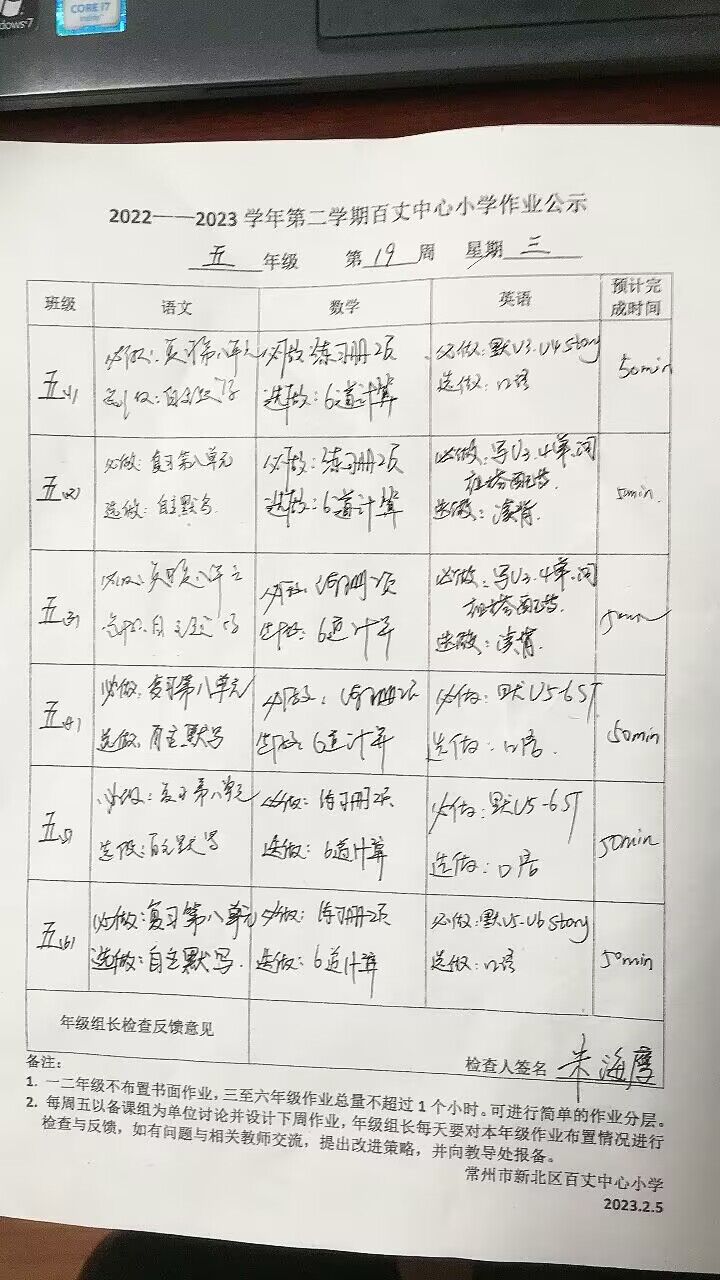 dows 7
CORE i7
2022——2023 学年第二学期百丈中心小学作业公示
五 年级 第 19 周 星期 三
班级 语文 数学 英语 预计完成时间
五(1) 必做：复习第八单元 必做：练习册2页 必做：默U3.U4 story 50min
选做：自主默写 选做：6道计算 选做：口语
五(2) 必做：复习第八单元 必做：练习册2页 必做：写U3.4单词 50min
选做：自主默写 选做：6道计算 选做：读背
五(3) 必做：复习第八单元 必做：练习册2页 必做：写U3.4单词 50min
选做：自主默写 选做：6道计算 选做：读背
五(4) 必做：复习第八单元 必做：练习册2页 必做：默U5-6 ST 50min
选做：自主默写 选做：6道计算 选做：口语
五(5) 必做：复习第八单元 必做：练习册2页 必做：默U5-6 ST 50min
选做：自主默写 选做：6道计算 选做：口语
五(6) 必做：复习第八单元 必做：练习册2页 必做：默U5-U6 story 50min
选做：自主默写 选做：6道计算 选做：口语
年级组长检查反馈意见
检查人签名 朱海鹰
备注：
1. 一二年级不布置书面作业，三至六年级作业总量不超过 1 个小时。可进行简单的作业分层。
2. 每周五以备课组为单位讨论并设计下周作业，年级组长每天要对本年级作业布置情况进行
检查与反馈，如有问题与相关教师交流，提出改进策略，并向教导处报备。
常州市新北区百丈中心小学
2023.2.5